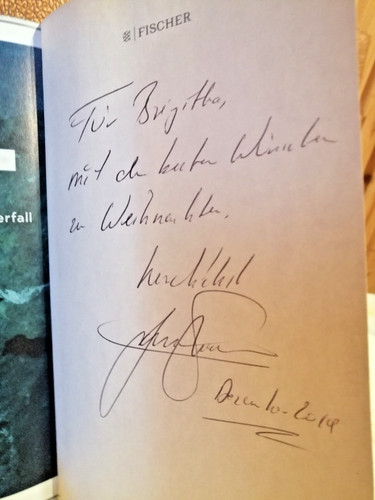 FISCHER
Für Brigitta,
mit den besten Wünschen
zu Weihnachten.
herzlichst
Dezember 2019
erfall